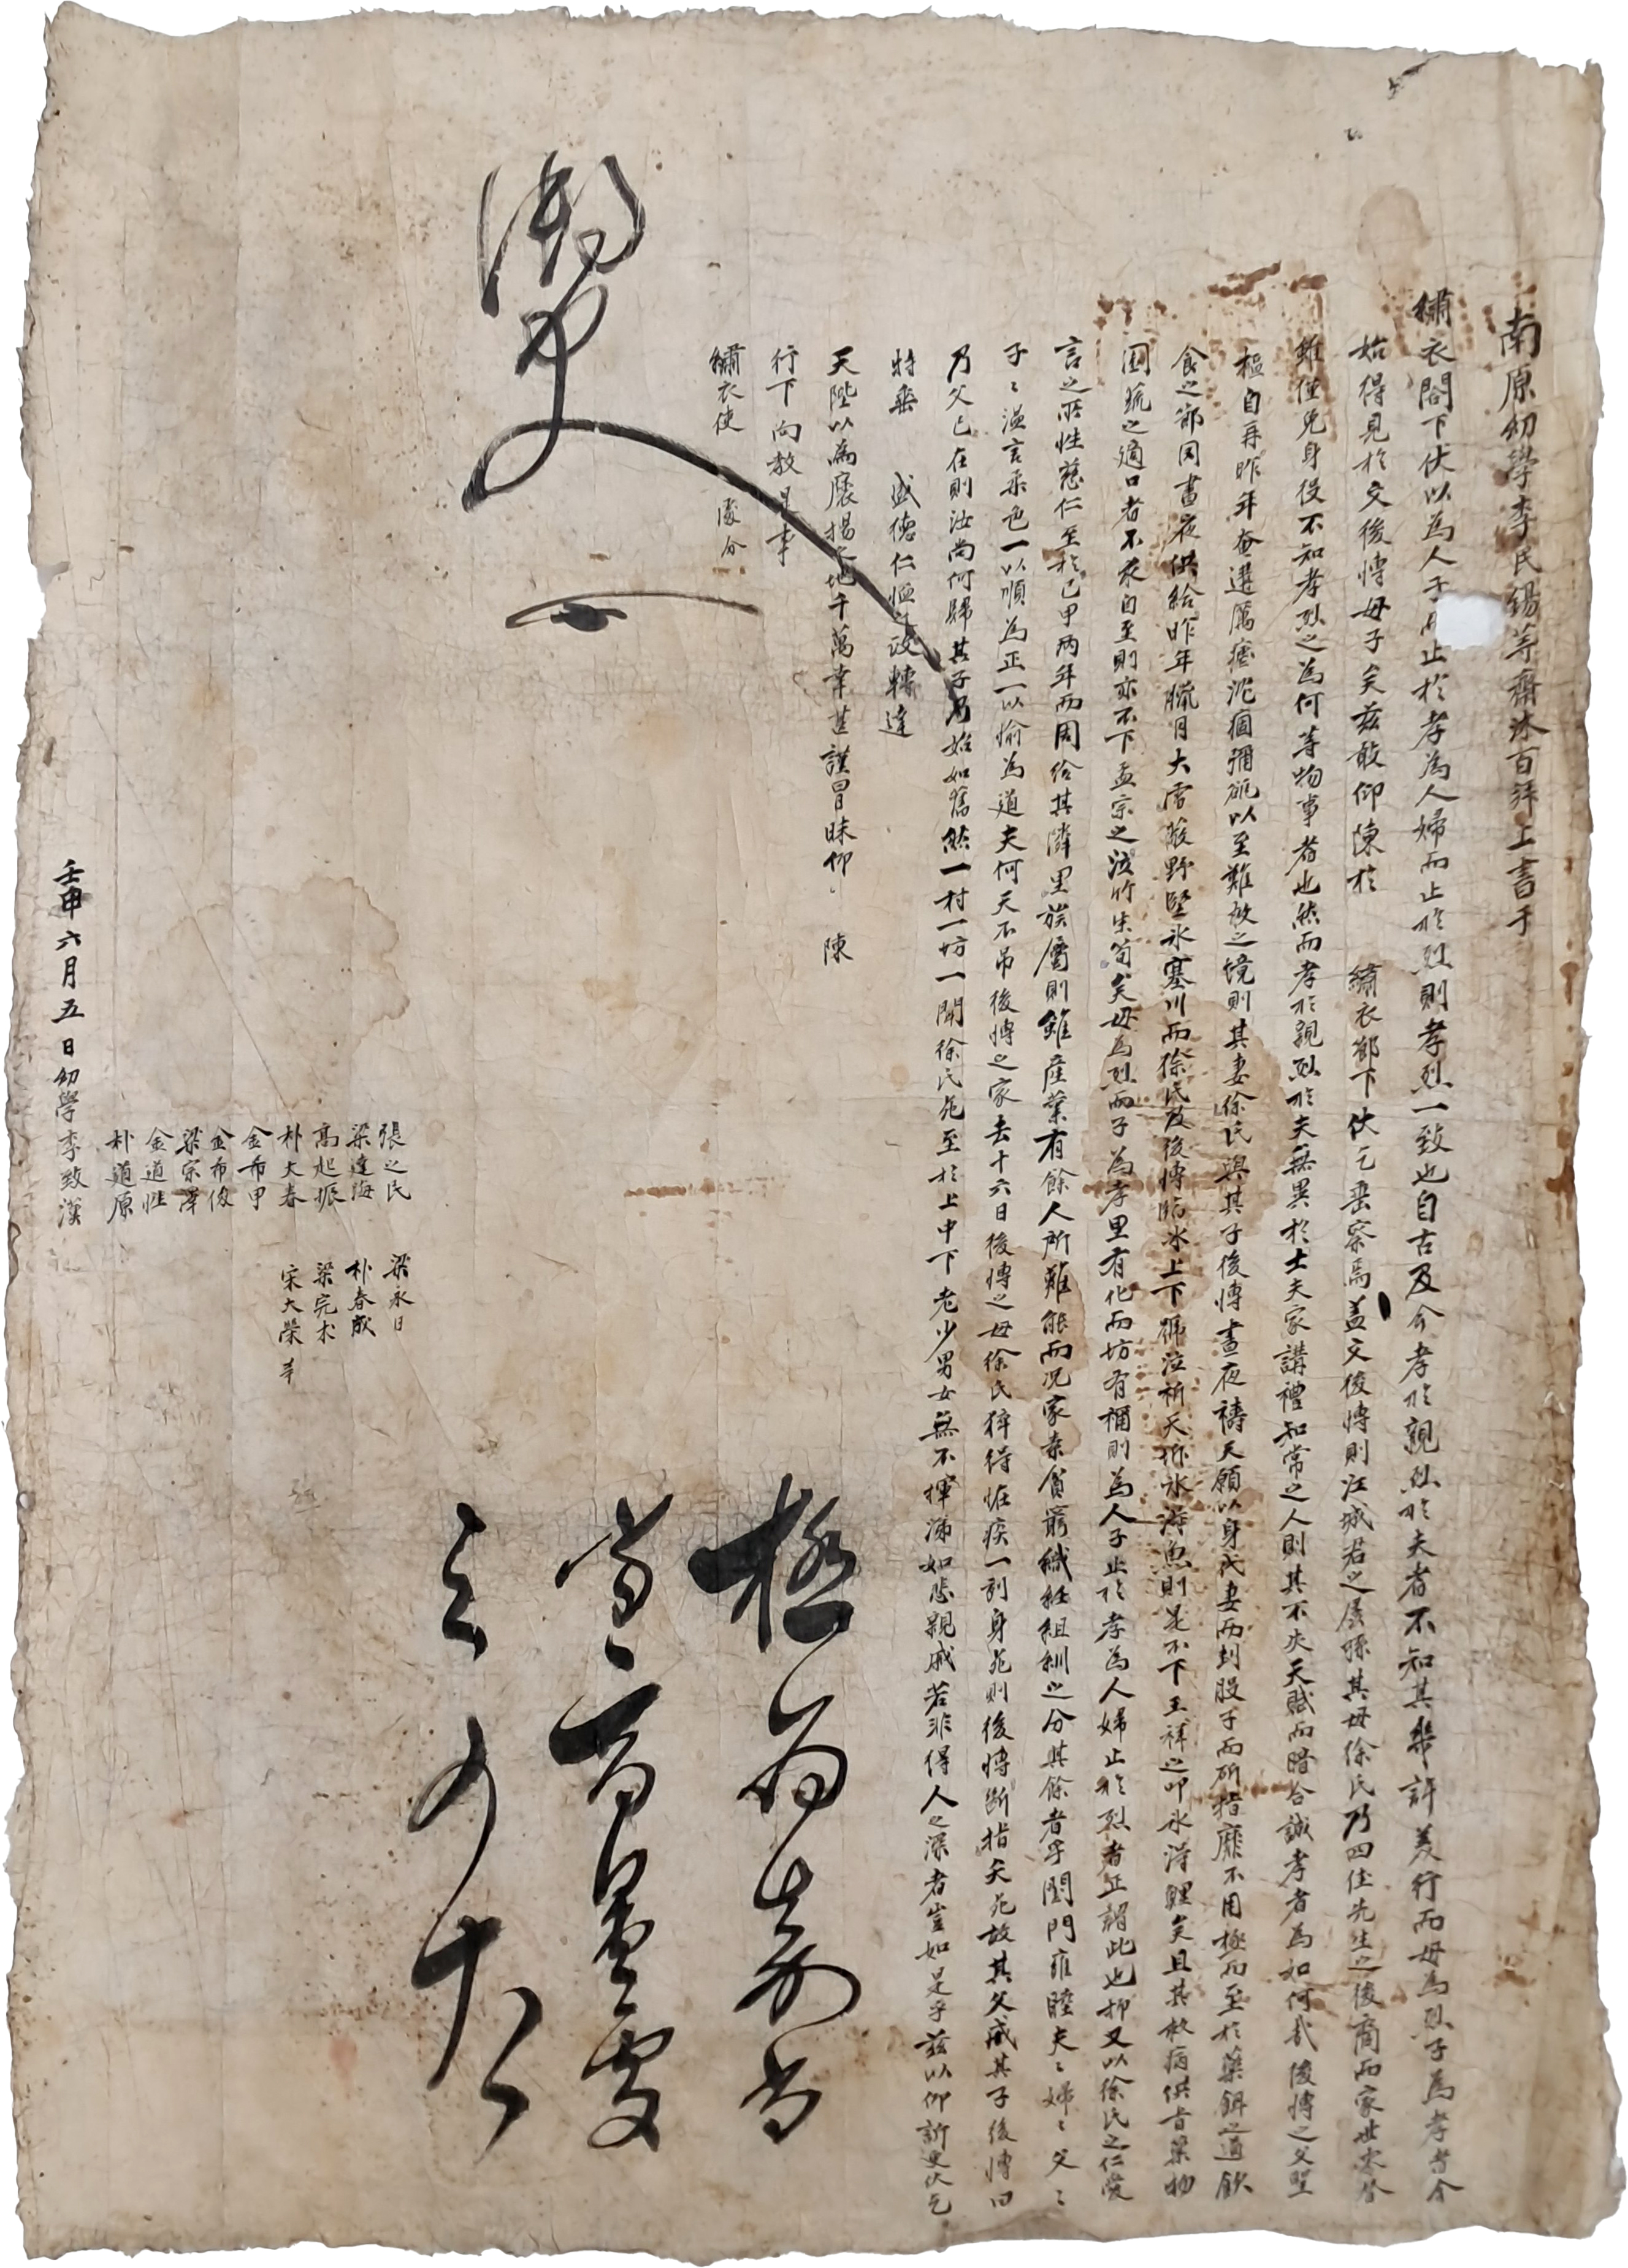 南原幼學李民錫等齋沐百拜上書于
繡衣閤下伏以為人子而止於孝為人婦而止於烈則孝烈一致也自古及今孝於親烈於夫者不知其幾許美行而母為烈子為孝者今
始得見於文後愽母子矣玆敢仰陳於 繡衣節下伏乞垂察焉盖文後愽則江城君之孱孫其母徐氏乃四佳先生之後裔而家世零替
雖僅免身役不知孝烈之為何等物事者也然而孝於親烈於夫無異於士夫家講禮知常之人則其不失天賦而暗合誠孝者為如何哉後愽之父堅
樞自再昨年奄遘厲瘧沈痼彌砥以至難救之境則其妻徐氏與其子後愽晝夜禱天願以身代妻而刲股子而斫指靡不用極而至於藥餌之道飮
食之節罔晝夜供給昨年臘月大雪蔽野堅氷塞川而徐氏及後愽臨氷上下號泣祈天拆氷得魚則是不下王祥之叩氷得鯉矣且其救病供旨藥物
園蔬之適口者不求自至則亦不下孟宗之泣竹生筍矣母為烈而子為孝里有化而坊有稱則為人子止於孝為人婦止於烈者正謂此也抑又以徐氏之仁愛
言之所性慈仁至於己甲兩年而周給其隣里族屬則雖産業有餘人所難能而况家素貧窮織紝組紃之分其餘者乎閨門雍睦夫〻婦〻父〻
子〻溫言柔色一以順為正一以愉為道夫何天不吊後愽之家去十六日後愽之母徐氏猝得恠疾一刻身死則後愽斷指矣死故其父戒其子後愽曰
乃父已在則汝尚何歸其子乃始如舊然一村一坊一聞徐氏死至於上中下老少男女無不揮涕如悲親戚若非得人之深者豈如是乎玆以仰訴更伏乞
特垂 盛德仁恤之政轉達
天陛以為褒揚之地千萬幸甚謹冒昧仰 陳
行下向敎是事
繡衣使 處分
極為嘉尚
張之民 梁永日
梁達海 朴春成
高起振 梁完木
朴大春 宋大榮 等
金希甲
金希俊
梁宗澤
金道性
朴道原
壬申六月五日幼學李致漢